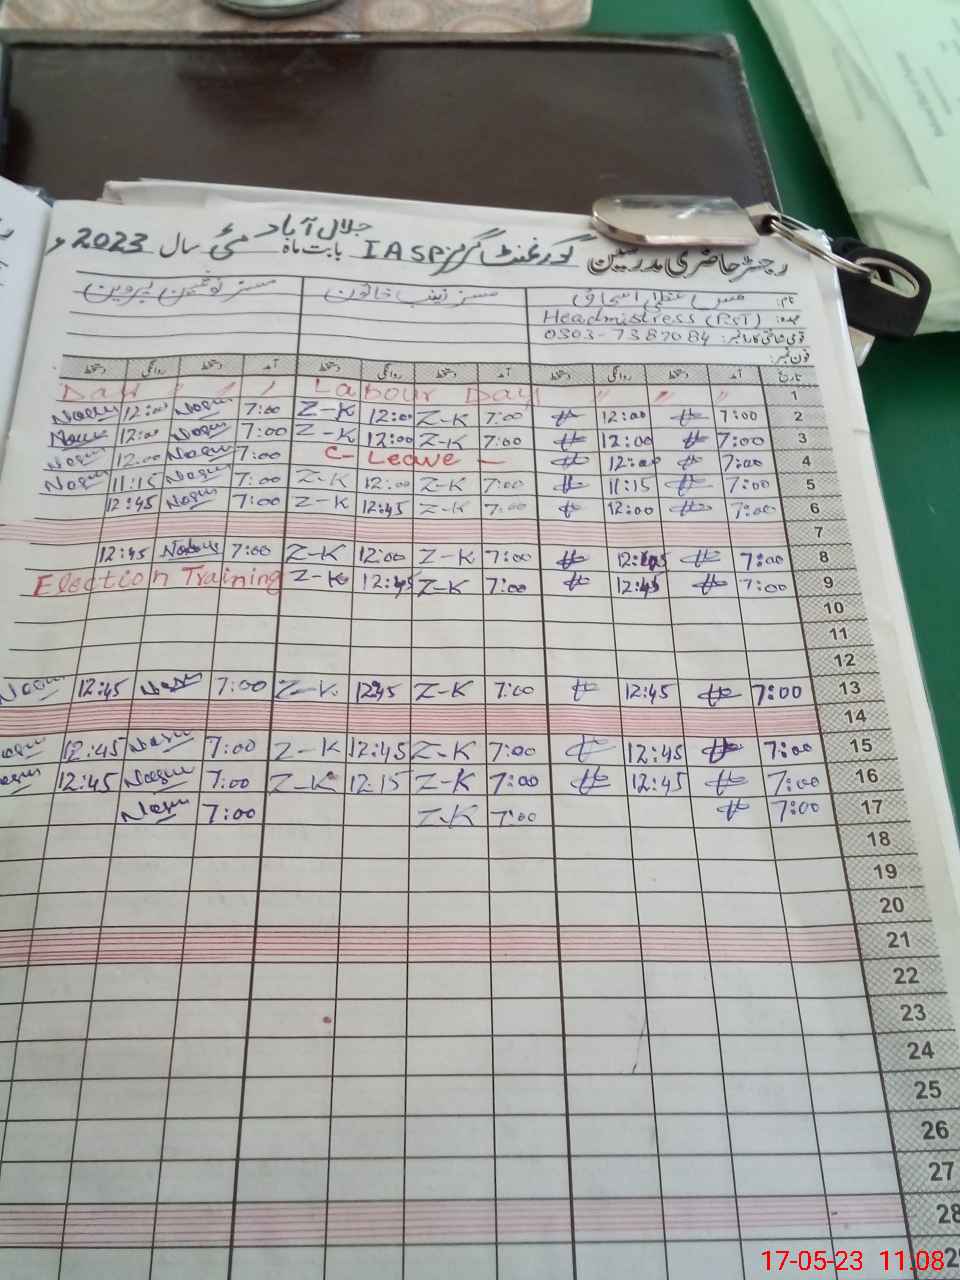 جلال آباد
رجسٹر حاضری مدرسین گورنمنٹ گرلز IASP بابت ماہ مئی سال 2023
نام: مس عظمیٰ اسحاق مسز زینب خاتون مسز نوشین پروین
عہدہ: Headmistress (RST)
قومی شناختی کارڈ نمبر: 0303-7387084
فون نمبر:
تاریخ آمد دستخط روانگی دستخط آمد دستخط روانگی دستخط آمد دستخط روانگی دستخط
Day " " " Labour Day " " " 1
12:00 7:00 Z-K 12:00 Z-K 7:00 12:00 7:00 2
12:00 7:00 Z-K 12:00 Z-K 7:00 12:00 7:00 3
12:00 7:00 C- Leave - 12:00 7:00 4
11:15 7:00 Z-K 12:00 Z-K 7:00 11:15 7:00 5
12:45 7:00 Z-K 12:45 Z-K 7:00 12:00 7:00 6
7
12:45 7:00 Z-K 12:00 Z-K 7:00 7:00 8
Election Training Z-K 12:45 Z-K 7:00 12:45 7:00 9
10
11
12
12:45 7:00 Z-K 12:45 Z-K 7:00 12:45 7:00 13
14
12:45 7:00 Z-K 12:45 Z-K 7:00 12:45 7:00 15
12:45 7:00 Z-K 12:15 Z-K 7:00 12:45 7:00 16
7:00 Z-K 7:00 7:00 17
18
19
20
21
22
23
24
25
26
27
28
29
17-05-23 11:08